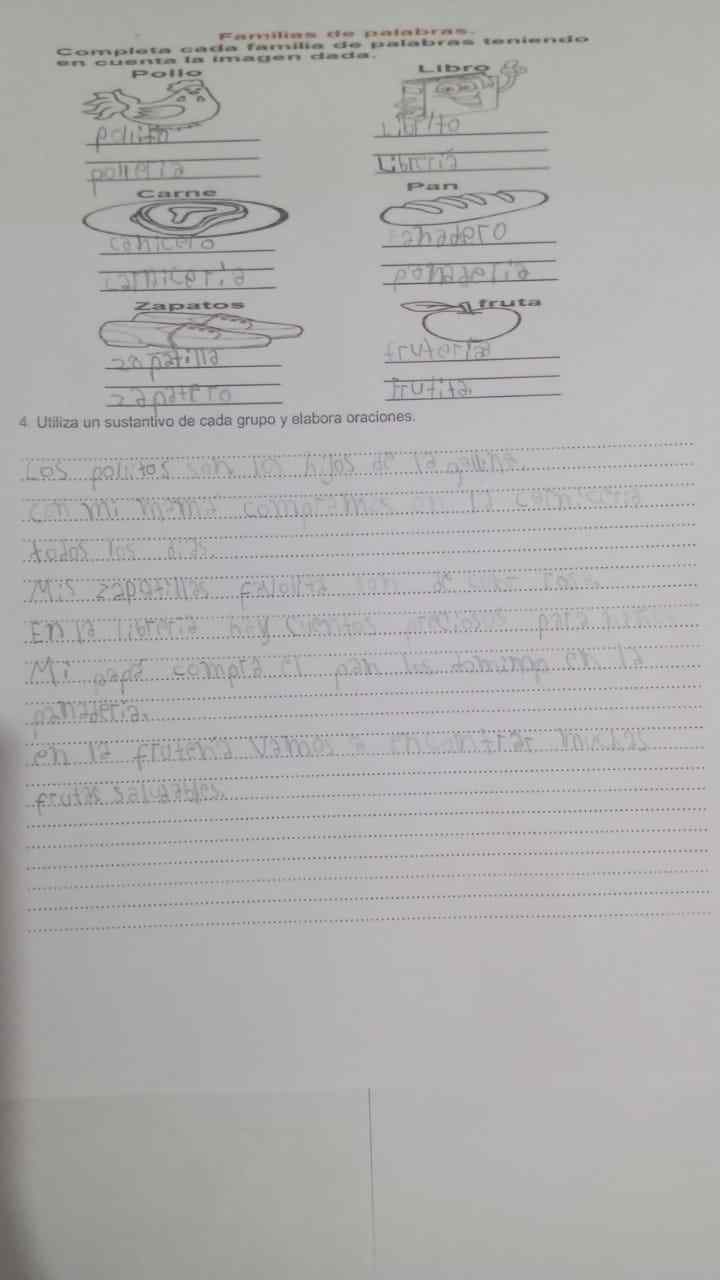 Familias de palabras.
Completa cada familia de palabras teniendo
en cuenta la imagen dada.
Pollo
pollito
polleria
Libro
Librito
Libreria
Carne
canicero
carniceria
Pan
panadero
panaderia
Zapatos
zapatilla
zapatero
fruta
fruteria
frutita.
4. Utiliza un sustantivo de cada grupo y elabora oraciones.
Los politos son los hijos de la gallina.
con mi mamá compramos en la carniceria
todos los dias.
Mis zapatillas faborita son de color rosa.
En la libreria hay cuentos preciosos para
Mi papá compra el pan los domingo en la
panaderia.
en la fruteria vamos a encontrar muchas
frutas saludables.